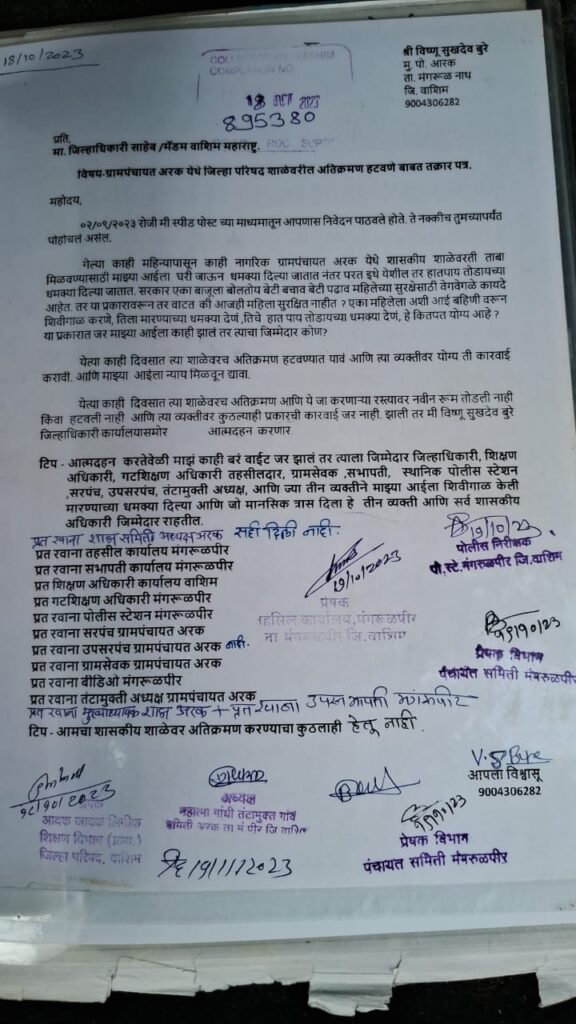 18/10/2023
COLLECTORATE WASHIM
COMPLAINCH NO.
18 OCT 2023
895380
श्री विष्णू सुखदेव बुरे
मु. पो. आरक
ता. मंगरूळ नाथ
जि. वाशिम
9004306282
प्रति,
मा. जिल्हाधिकारी साहेब /मॅडम वाशिम महाराष्ट्र.
विषय-ग्रामपंचायत अरक येथे जिल्हा परिषद शाळेवरील अतिक्रमण हटवणे बाबत तक्रार पत्र.
महोदय,
०२/०९/२०२३ रोजी मी स्पीड पोस्ट च्या माध्यमातून आपणास निवेदन पाठवले होते. ते नक्कीच तुमच्यापर्यंत
पोहोचलं असेल.
गेल्या काही महिन्यापासून काही नागरिक ग्रामपंचायत अरक येथे शासकीय शाळेवरती ताबा
मिळवण्यासाठी माझ्या आईला घरी जाऊन धमक्या दिल्या जातात नंतर परत इथे येशील तर हातपाय तोडायच्या
धमक्या दिल्या जातात. सरकार एका बाजूला बोलतोय बेटी बचाव बेटी पढाव महिलेच्या सुरक्षेसाठी वेगवेगळे कायदे
आहेत. तर या प्रकारावरून तर वाटत की आजही महिला सुरक्षित नाहीत ? एका महिलेला अशी आई बहिणी वरून
शिवीगाळ करणे, तिला मारण्याच्या धमक्या देणं, तिचे हात पाय तोडायच्या धमक्या देणं, हे कितपत योग्य आहे ?
या प्रकारात जर माझ्या आईला काही झालं तर त्याचा जिम्मेदार कोण?
येत्या काही दिवसात त्या शाळेवरच अतिक्रमण हटवण्यात यावं आणि त्या व्यक्तीवर योग्य ती कारवाई
करावी. आणि माझ्या आईला न्याय मिळवून द्यावा.
येत्या काही दिवसात त्या शाळेवरच अतिक्रमण आणि ये जा करणाऱ्या रस्त्यावर नवीन रूम तोडली नाही
किंवा हटवली नाही आणि त्या व्यक्तीवर कुठल्याही प्रकारची कारवाई जर नाही. झाली तर मी विष्णू सुखदेव बुरे
जिल्हाधिकारी कार्यालयासमोर आत्मदहन करणार
टिप - आत्मदहन करतेवेळी माझं काही बरं वाईट जर झालं तर त्याला जिम्मेदार जिल्हाधिकारी, शिक्षण
अधिकारी, गटशिक्षण अधिकारी तहसीलदार, ग्रामसेवक ,सभापती, स्थानिक पोलीस स्टेशन
,सरपंच, उपसरपंच, तंटामुक्ती अध्यक्ष, आणि ज्या तीन व्यक्तीने माझ्या आईला शिवीगाळ केली
मारण्याच्या धमक्या दिल्या आणि जो मानसिक त्रास दिला हे तीन व्यक्ती आणि सर्व शासकीय
अधिकारी जिम्मेदार राहतील.
प्रत रवाना शाळा समिती अध्यक्ष अरक सही दिली नाही.
प्रत रवाना तहसील कार्यालय मंगरूळपीर
प्रत रवाना सभापती कार्यालय मंगरूळपीर
प्रत शिक्षण अधिकारी कार्यालय वाशिम
प्रत गटशिक्षण अधिकारी मंगरूळपीर
प्रत रवाना पोलीस स्टेशन मंगरूळपीर
प्रत रवाना सरपंच ग्रामपंचायत अरक
प्रत रवाना उपसरपंच ग्रामपंचायत अरक नाही.
प्रत रवाना ग्रामसेवक ग्रामपंचायत अरक
प्रत रवाना बीडिओ मंगरूळपीर
प्रत रवाना तंटामुक्ती अध्यक्ष ग्रामपंचायत अरक
प्रत रवाना मुख्याध्यापक शाळा अरक + प्रत रवाना उपसभापती मंगरूळपीर
टिप - आमचा शासकीय शाळेवर अतिक्रमण करण्याचा कुठलाही हेतू नाही.
19/10/23
पोलीस निरीक्षक
पो.स्टे. मंगरुळपीर जि. वाशिम
19/10/2023
प्रेषक
तहसिल कार्यालय, मंगरूळपीर
ता मंगरूळपीर जि. वाशिम
१९/१०/२३
प्रेषक विभाग
पंचायत समिती मंगरुळपीर
V.S Bure
आपला विश्वासू
9004306282
१८/१०/२०२३
प्रेषक
आवक जावक लिपीक
शिक्षण विभाग (प्राथ.)
जिल्हा परिषद, वाशिम
अध्यक्ष
महात्मा गांधी तंटामुक्त गांव
समिती अरक ता मं पीर जि वाशिम
दि 19/11/2023
१९/१०/२३
प्रेषक विभाग
पंचायत समिती मंगरुळपीर